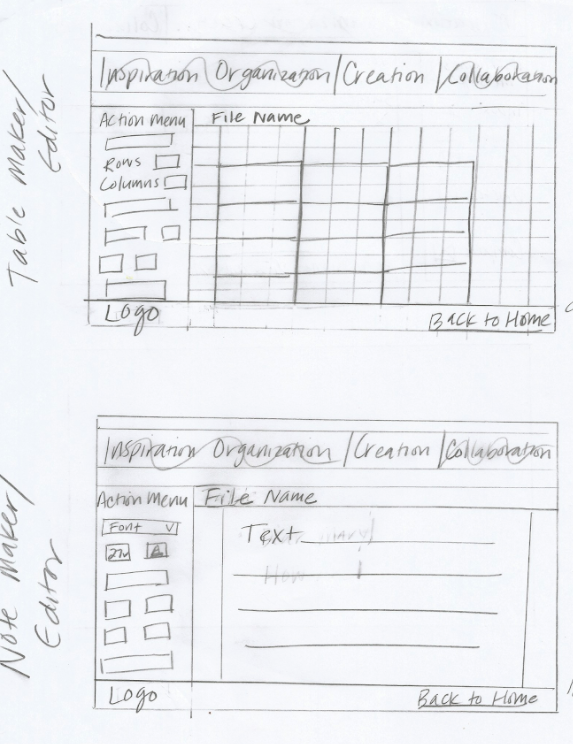 Table Maker/
Editor
Inspiration Organization / Creation / Collaboration
Action Menu
File Name
Rows
Columns
Logo
Back to Home
Note Maker/
Editor
Inspiration Organization / Creation / Collaboration
Action Menu
File Name
Font
Text
Logo
Back to Home